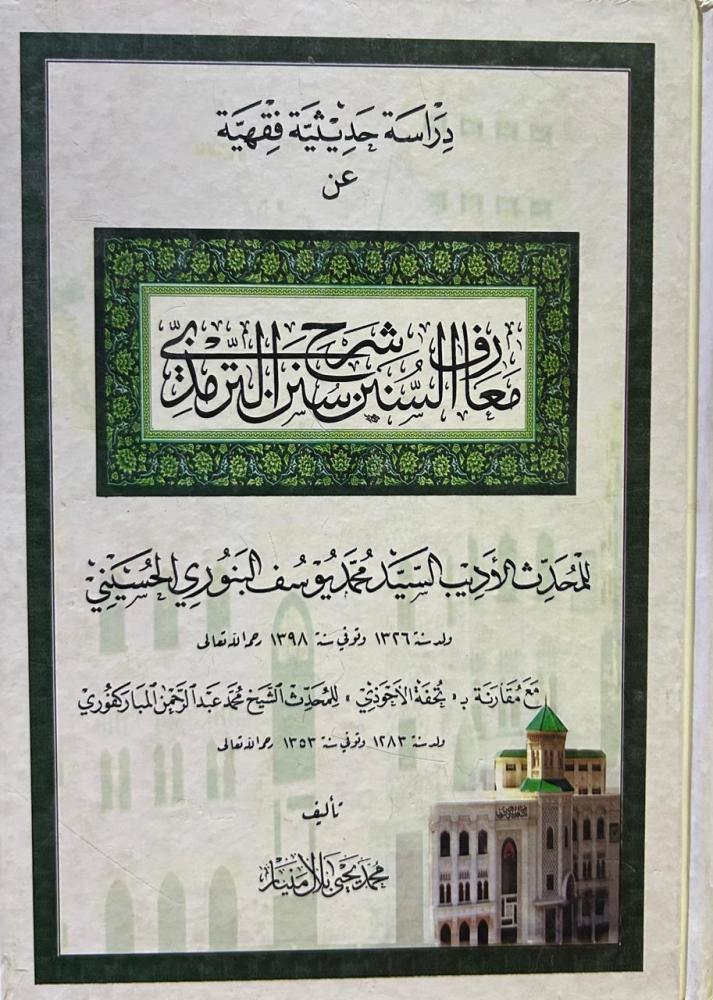 دِرَاسَة حَدِيثِيَّة فِقْهِيَّة
عَن
مَعَارِفُ السُّنَنِ شَرح سُنَنِ التِّرمِذِيّ
لِلمُحَدِّثِ الأَدِيبِ السَّيِّد مُحَمَّد يُوسُف البَنُورِي الحُسَيْنِيّ
ولد سنة ١٣٢٦ وتوفي سنة ١٣٩٨ رحمه الله تعالى
مَعَ مُقَارَنَة بـ « تُحْفَة الأَحْوَذِي » لِلمُحَدِّث الشَّيْخ مُحَمَّد عَبْد الرَّحْمٰن المُبَارَكْفُورِي
ولد سنة ١٢٨٣ وتوفي سنة ١٣٥٣ رحمه الله تعالى
تأليف
محمد يحيى بلال منيار